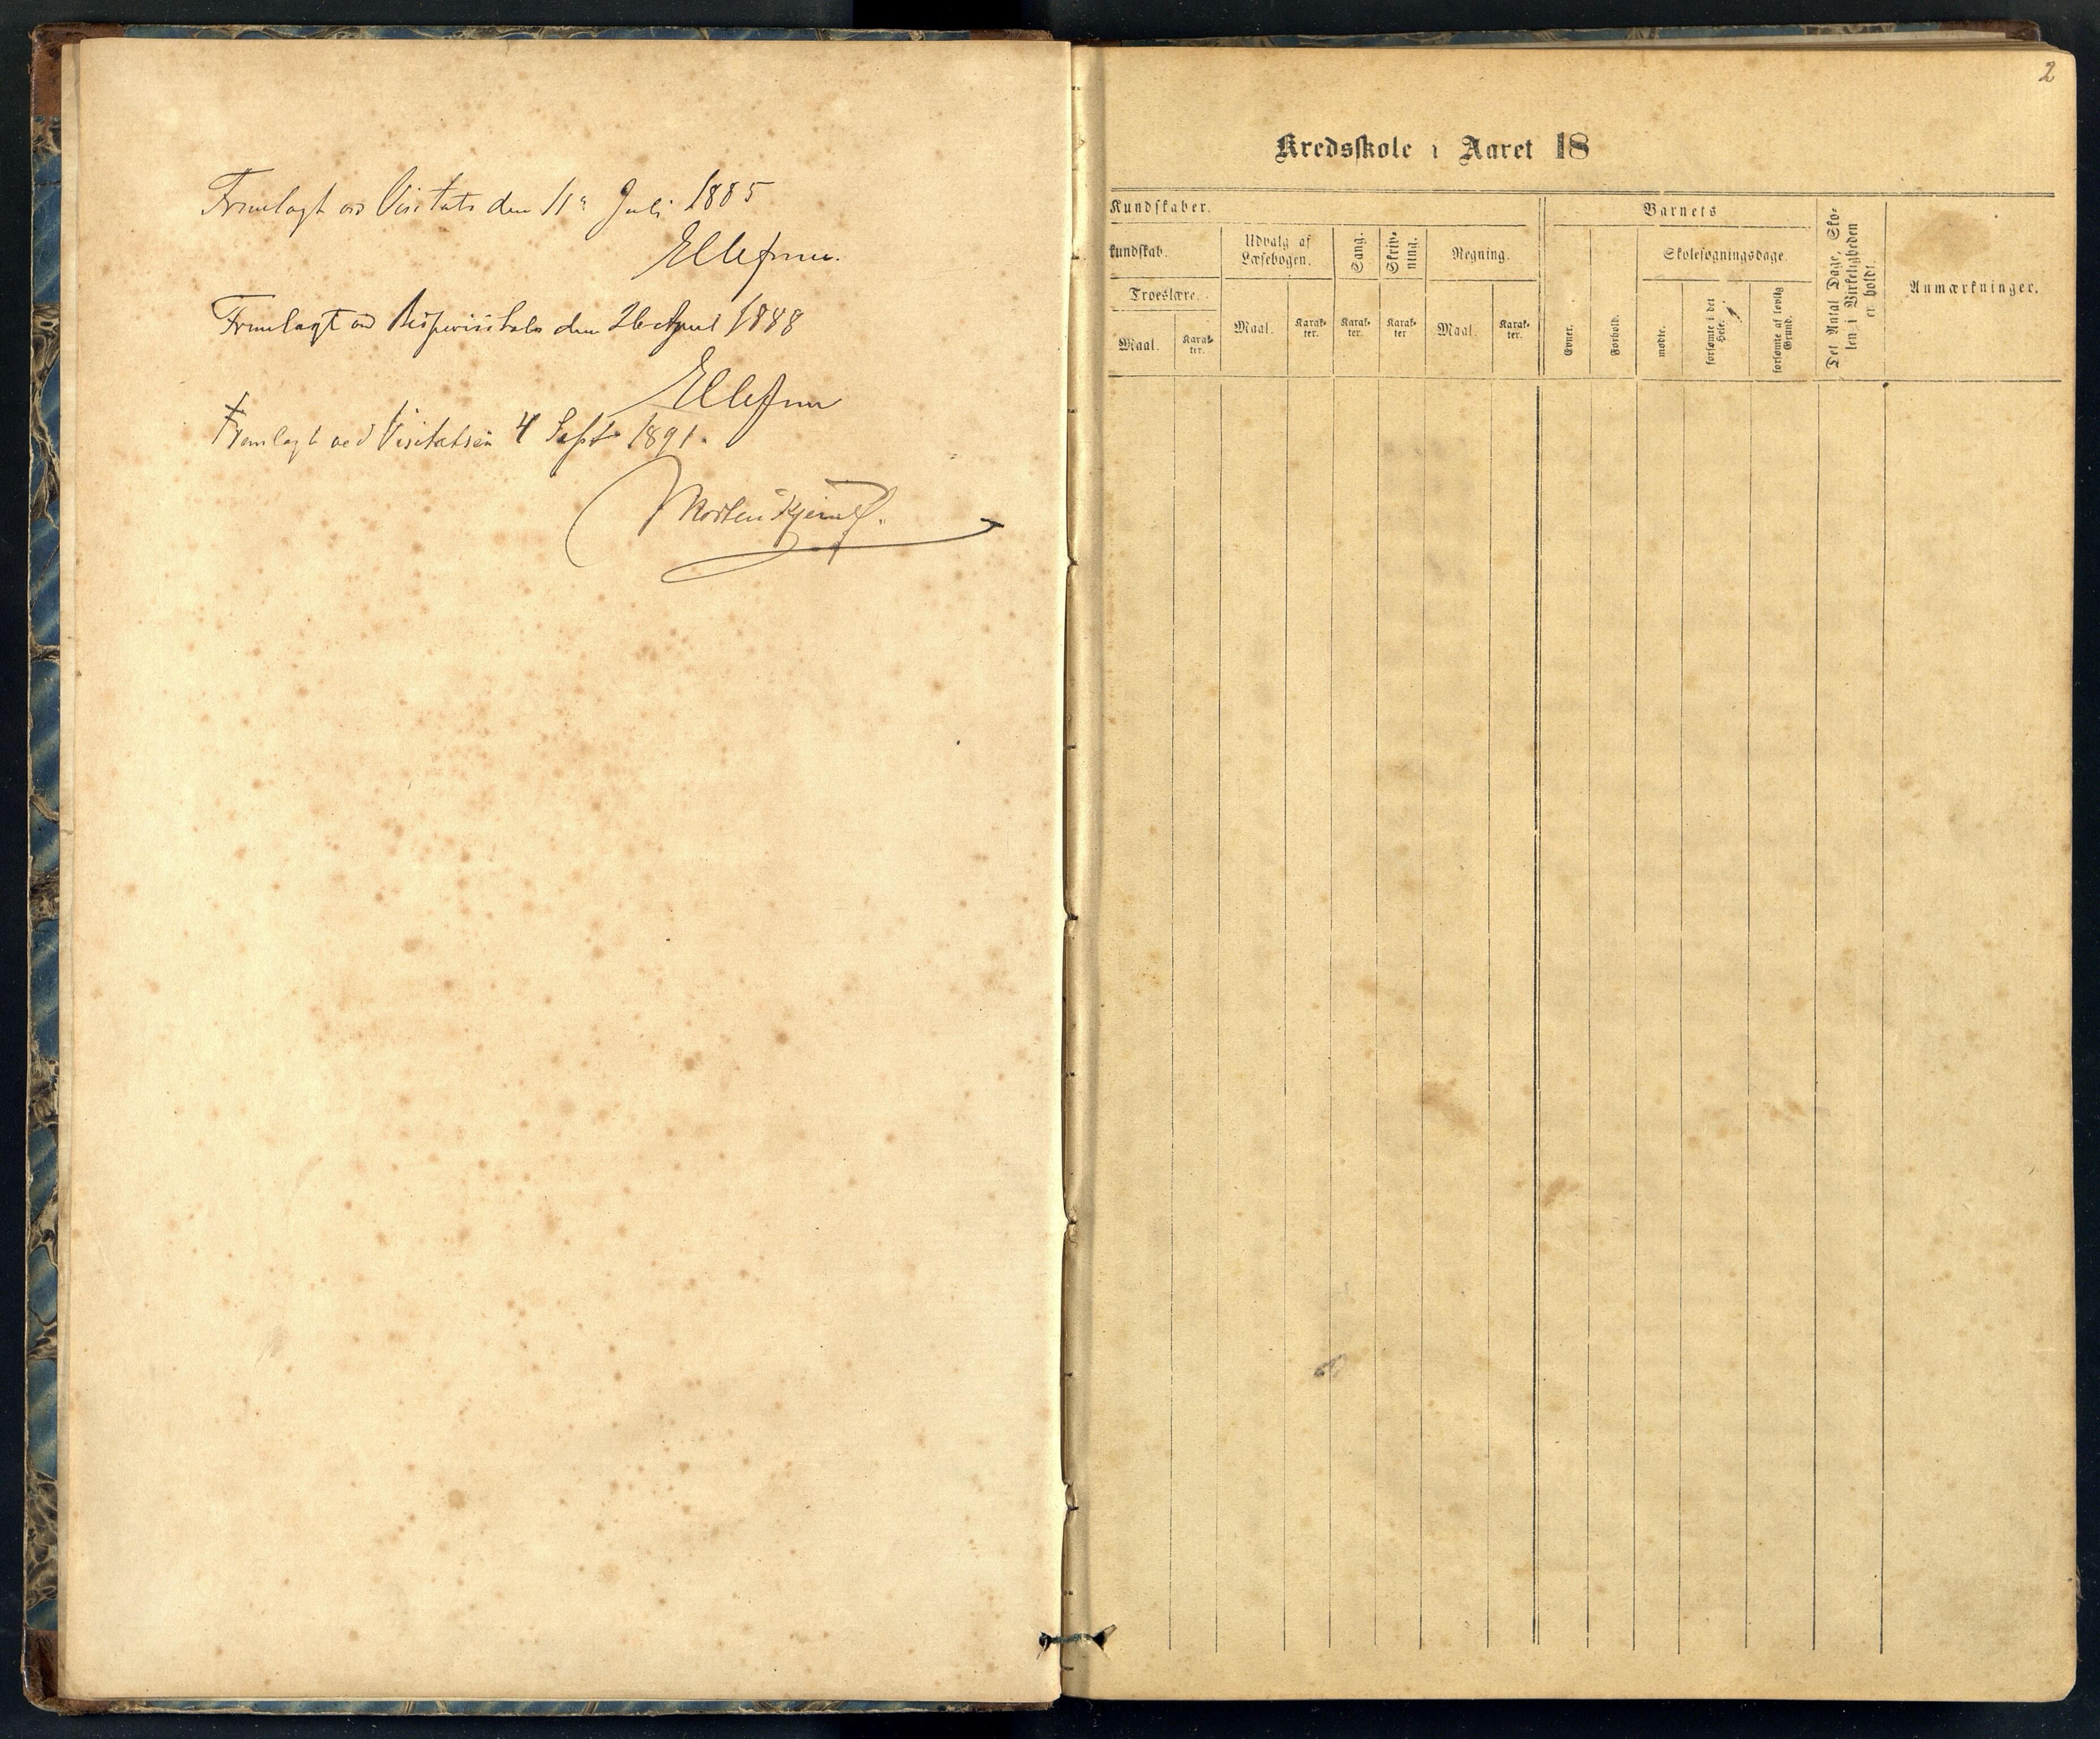 Fremlagt ved Visitats den 11te Juli 1885
Ellefsen.
Fremlagt ved Bispevisitats den 26 April 1888
Ellefsen
Fremlagt ved Visitatsen 4 Sept 1891.
Morten
2
Kredsskole i Aaret 18
Kundskaber.
Barnets
Det Antal Dage, Sko-
len i Virkeligheden
er holdt.
Anmærkninger.
kundskab.
Udvalg af
Læsebogen.
Sang.
Skriv-
ning.
Regning.
Skolesøgningsdage.
Troeslære.
Maal.
Karak-
ter.
Maal.
Karak-
ter.
Karak-
ter.
Karak-
ter
Maal.
Karak-
ter.
Evner.
Forhold.
mødte.
forsømte i det
Hele.
forsømte af lovlig
Grund.